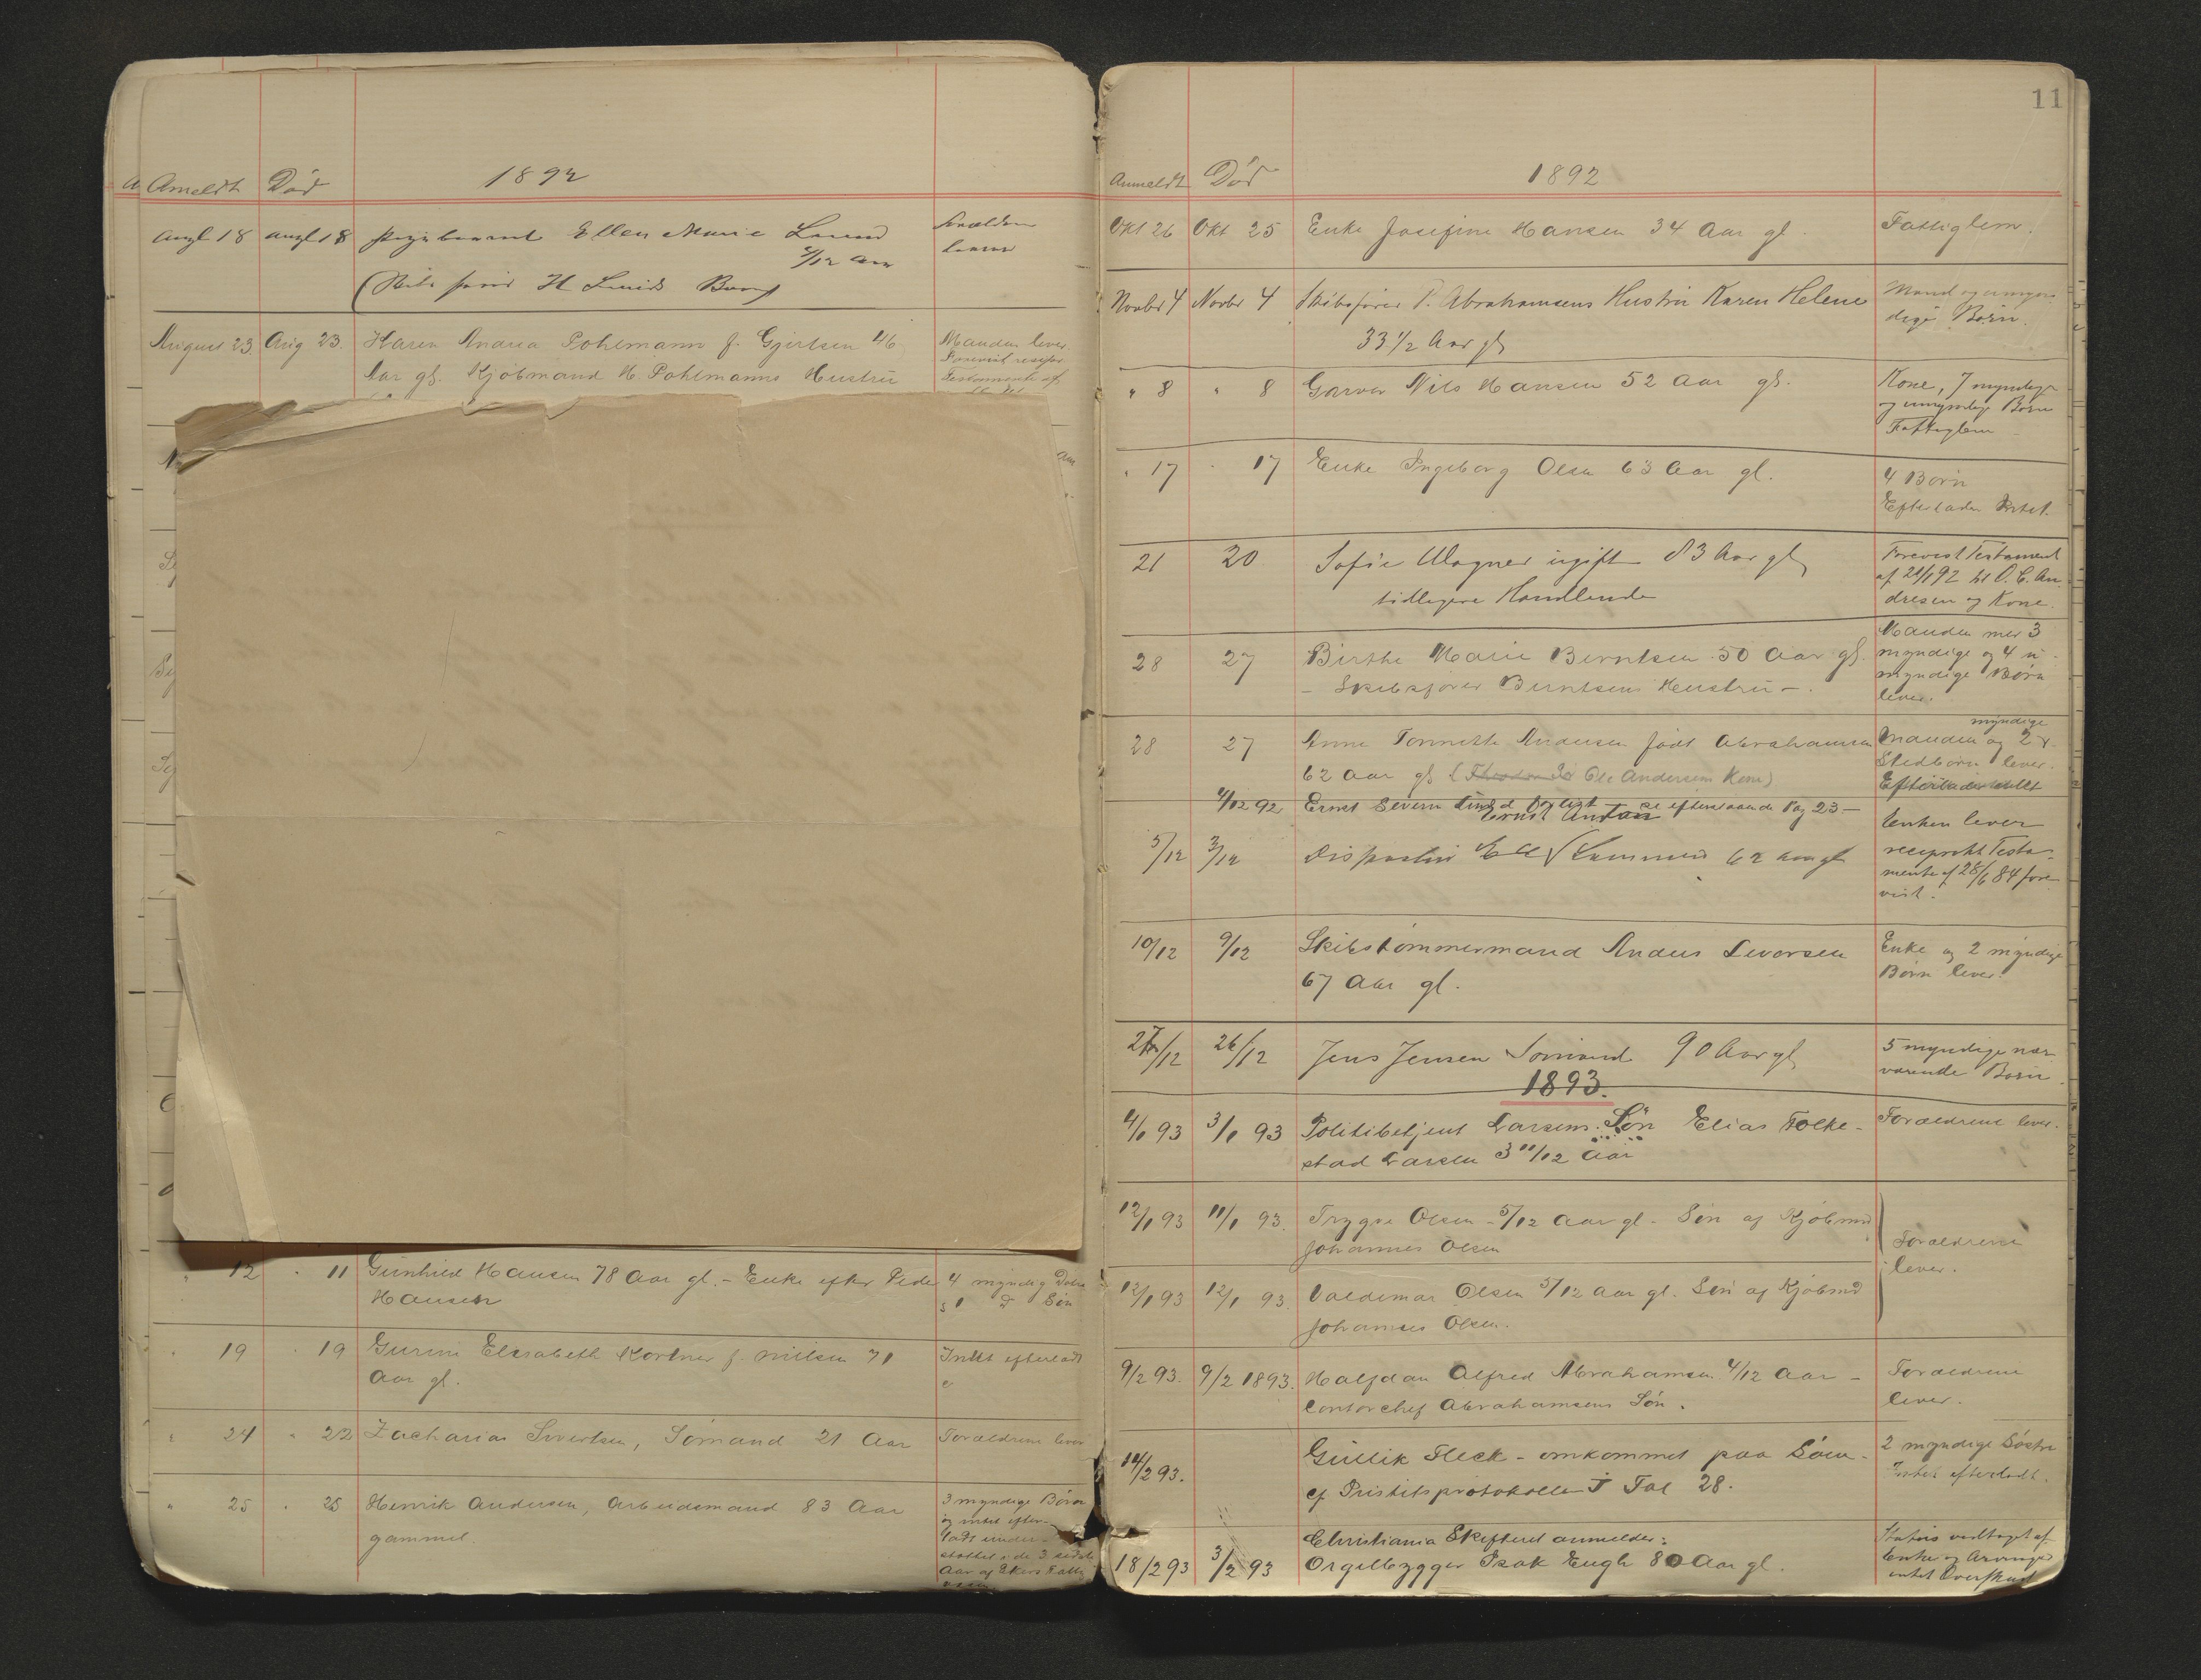 Ameldt Död 1892
Augt 18 augt 18 Pigebarnet Ellen Marie Lund
/12 aar
(Skibsfører H Lunds Barn)
August 23. Aug 23. Karen Andrea Pohlmann f. Gjertsen 46 Manden lever
Aar gl. Kjøbmand H Pohlmanns Hustru
Testamente af
12 " 11 Gunhild Hansen 78 Aar gl. - Enke efter Peder 4 myndig Døtre
Hansen s 1 D Søn
" 19 " 19 Gurine Elisabeth Kortner f. Nilsen 71 Intet efterladt
Aar gl.
" 24 " 22 Zacharias Sivertsen, Sømand 21 Aar Forældrene lever
" 25 " 25 Henrik Andersen, Arbeidsmand 83 Aar 3 myndige Børn
gammel. og intet efter-
ladt under-
støttet i de 3 sidste
Aar af Skiens Fattig
11
Anmeldt Död 1892
Okt 26 Okt 25 Enke Josefine Hansen 34 Aar gl. Fattiglem.
Novbr 4 Novbr 4 Skibsfører P. Abrahamsens Hustru Karen Helene Mand og umyn-
33 1/2 Aar gl dige Børn.
" 8 " 8 Garver Nils Hansen 52 Aar gl. Kone, 7 myndige
og umyndige Børn
Fattiglem
" 17 " 17 Enke Ingeborg Olsen 63 Aar gl. 4 Børn
Efterlader Intet.
21 20 Sofie Wagner ugift 83 Aar gl Forevist Testament
tidligere Handlende af 21/1 92 til O. C. An-
dresen og Kone.
28 27 Birthe Marie Berntsen 50 Aar gl. Manden med 3
- Skibsfører Berntsens Hustru -. myndige og 4 u-
myndige Børn
lever.
28 27 Anne Tonnette Andersen født Abrahamsen Manden og 2 myndige
62 Aar gl. ( Ole Andersens Kone) Stedbørn lever.
Efterlader intet
4/12 92 Ernst Severin se efterstaaende Pag 23 -
Ernst Anton
5/12 3/12 Disponent 62 aar gl Enken lever
reciprokt Testa-
mente af 28/6 84 fore-
vist.
10/12 9/12 Skibstømmermand Anders Sivorsen Enke og 2 myndige
67 Aar gl. Børn lever.
27/12 26/12 Jens Jensen Sømand 90 Aar gl 5 myndige nær-
værende Børn.
1893.
4/1 93 3/1 93 Politibetjent Larsens Søn Elias Folke- Forældrene lever.
stad Larsen 3 11/12 Aar
12/1 93 11/1 93. Trygve Olsen - 5/12 Aar gl - Søn af Kjøbmd
Johannes Olsen Forældrene
lever.
12/1 93 12/1 93. Valdemar Olsen 5/12 Aar gl. Søn af Kjøbmd
Johannes Olsen.
9/2 93. 9/2 1893. Halfdan Alfred Abrahamsen 4/12 Aar - Forældrene
Contorchef Abrahamsens Søn. lever.
14/2 93. Gullik Fleck - omkommet paa Søen - 2 myndige Søstre
cf Fristitsprotokollen I Fol 28. Intet efterladt.
Christiania Skifteret anmelder:
18/2 93 3/2 93 Orgelbygger Isak Engh 80 Aar gl. Status vedtaget af
Enke og Arvinger
intet Overskud